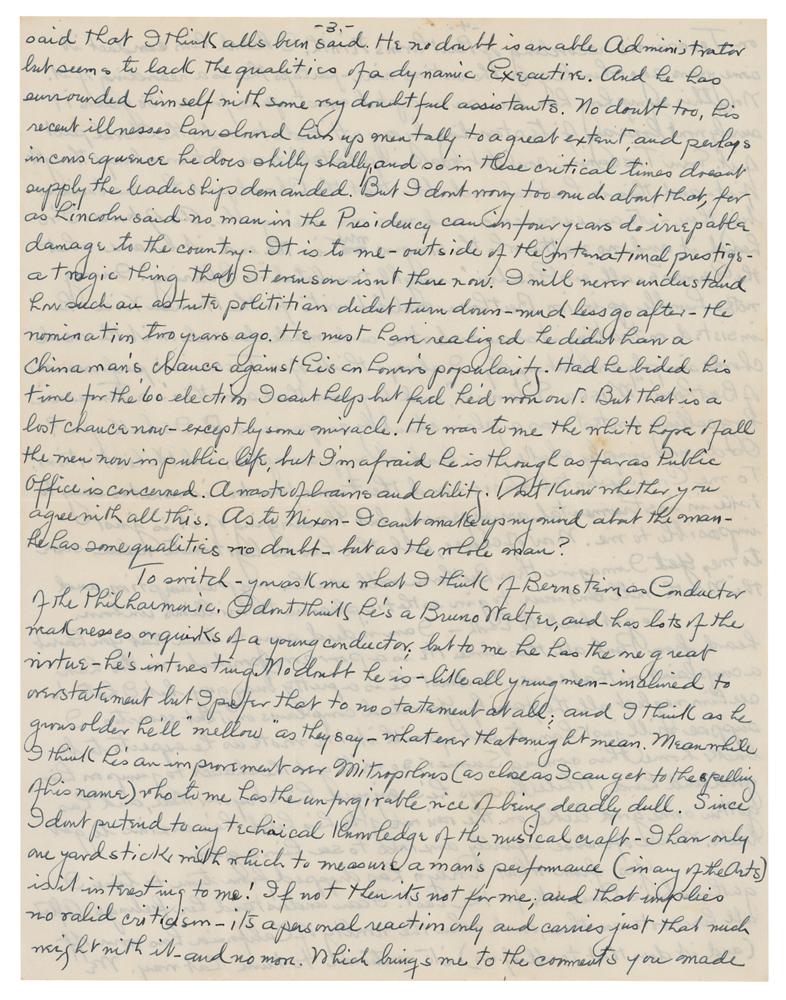 -3.-
said that I think alls been said. He no doubt is an able Administrator
but seems to lack the qualities of a dynamic Executive. And he has
surrounded himself with some very doubtful assistants. No doubt too, his
recent illnesses have slowed him up mentally to a great extent, and perhaps
in consequence he does shilly shally, and so in these critical times doesnt
supply the leadership demanded. But I dont worry too much about that, for
as Lincoln said no man in the Presidency can in four years do irrepable
damage to the country. It is to me - outside of the International prestige -
a tragic thing that Stevenson isn't there now. I will never understand
how such an astute polititian didnt turn down - much less go after - the
nomination two years ago. He must have realized he didnt have a
Chinaman's chance against Eisenhower's popularity. Had he bided his
time for the '60 election I cant helps but feel he'd won out. But that is a
lost chance now - except by some miracle. He was to me the white hope of all
the men now in public life, but I'm afraid he is though as far as Public
Office is concerned. A waste of brains and ability. Dont know whether you
agree with all this. As to Nixon - I cant make up my mind about the man -
he has some qualities no doubt - but as the whole man?
To switch - you ask me what I think of Bernstein as Conductor
of the Philharmonic. I dont think he's a Bruno Walter, and has lots of the
weaknesses or quirks of a young conductor; but to me he has the one great
virtue - he's interesting. No doubt he is - like all young men - inclined to
overstatement but I prefer that to no statement at all; and I think as he
grows older he'll "mellow" as they say - what ever that might mean. Meanwhile
I think he's an improvement over Mitropolous (as close as I can get to the spelling
of his name) who to me has the unforgivable vice of being deadly dull. Since
I dont pretend to any technical knowledge of the musical craft - I have only
one yard stick with which to measure a man's performance (in any of the Arts)
is it interesting to me! If not then its not for me; and that implies
no valid criticism - its a personal reaction only and carries just that much
weight with it - and no more. Which brings me to the comments you made